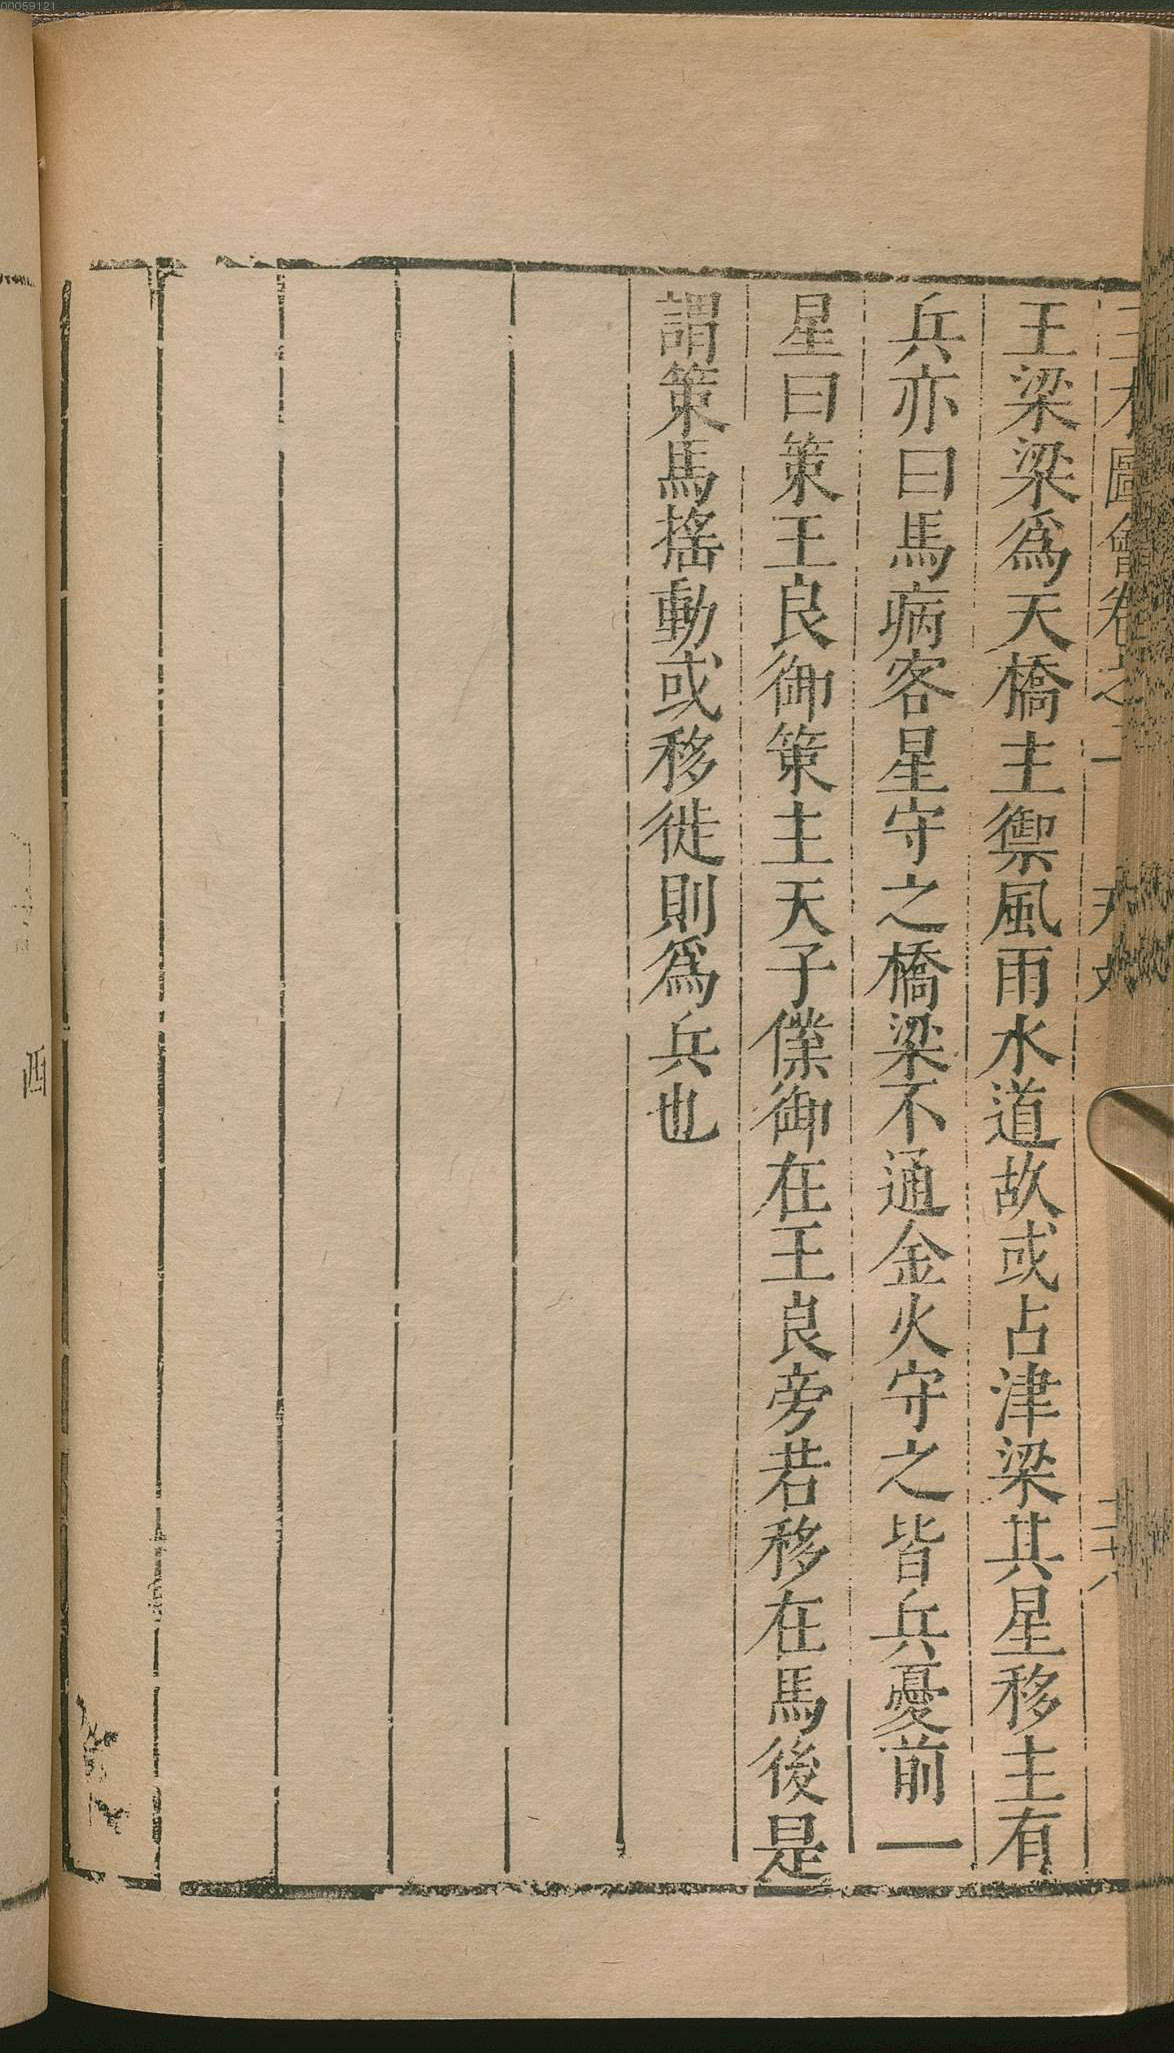 00059121
三才圖會卷之一 天文 三十八
王梁梁爲天橋主禦風雨水道故或占津梁其星移主有
兵亦曰馬病客星守之橋梁不通金火守之皆兵憂前一
星曰策王良御策主天子僕御在王良旁若移在馬後是
謂策馬搖動或移徙則爲兵也
酉